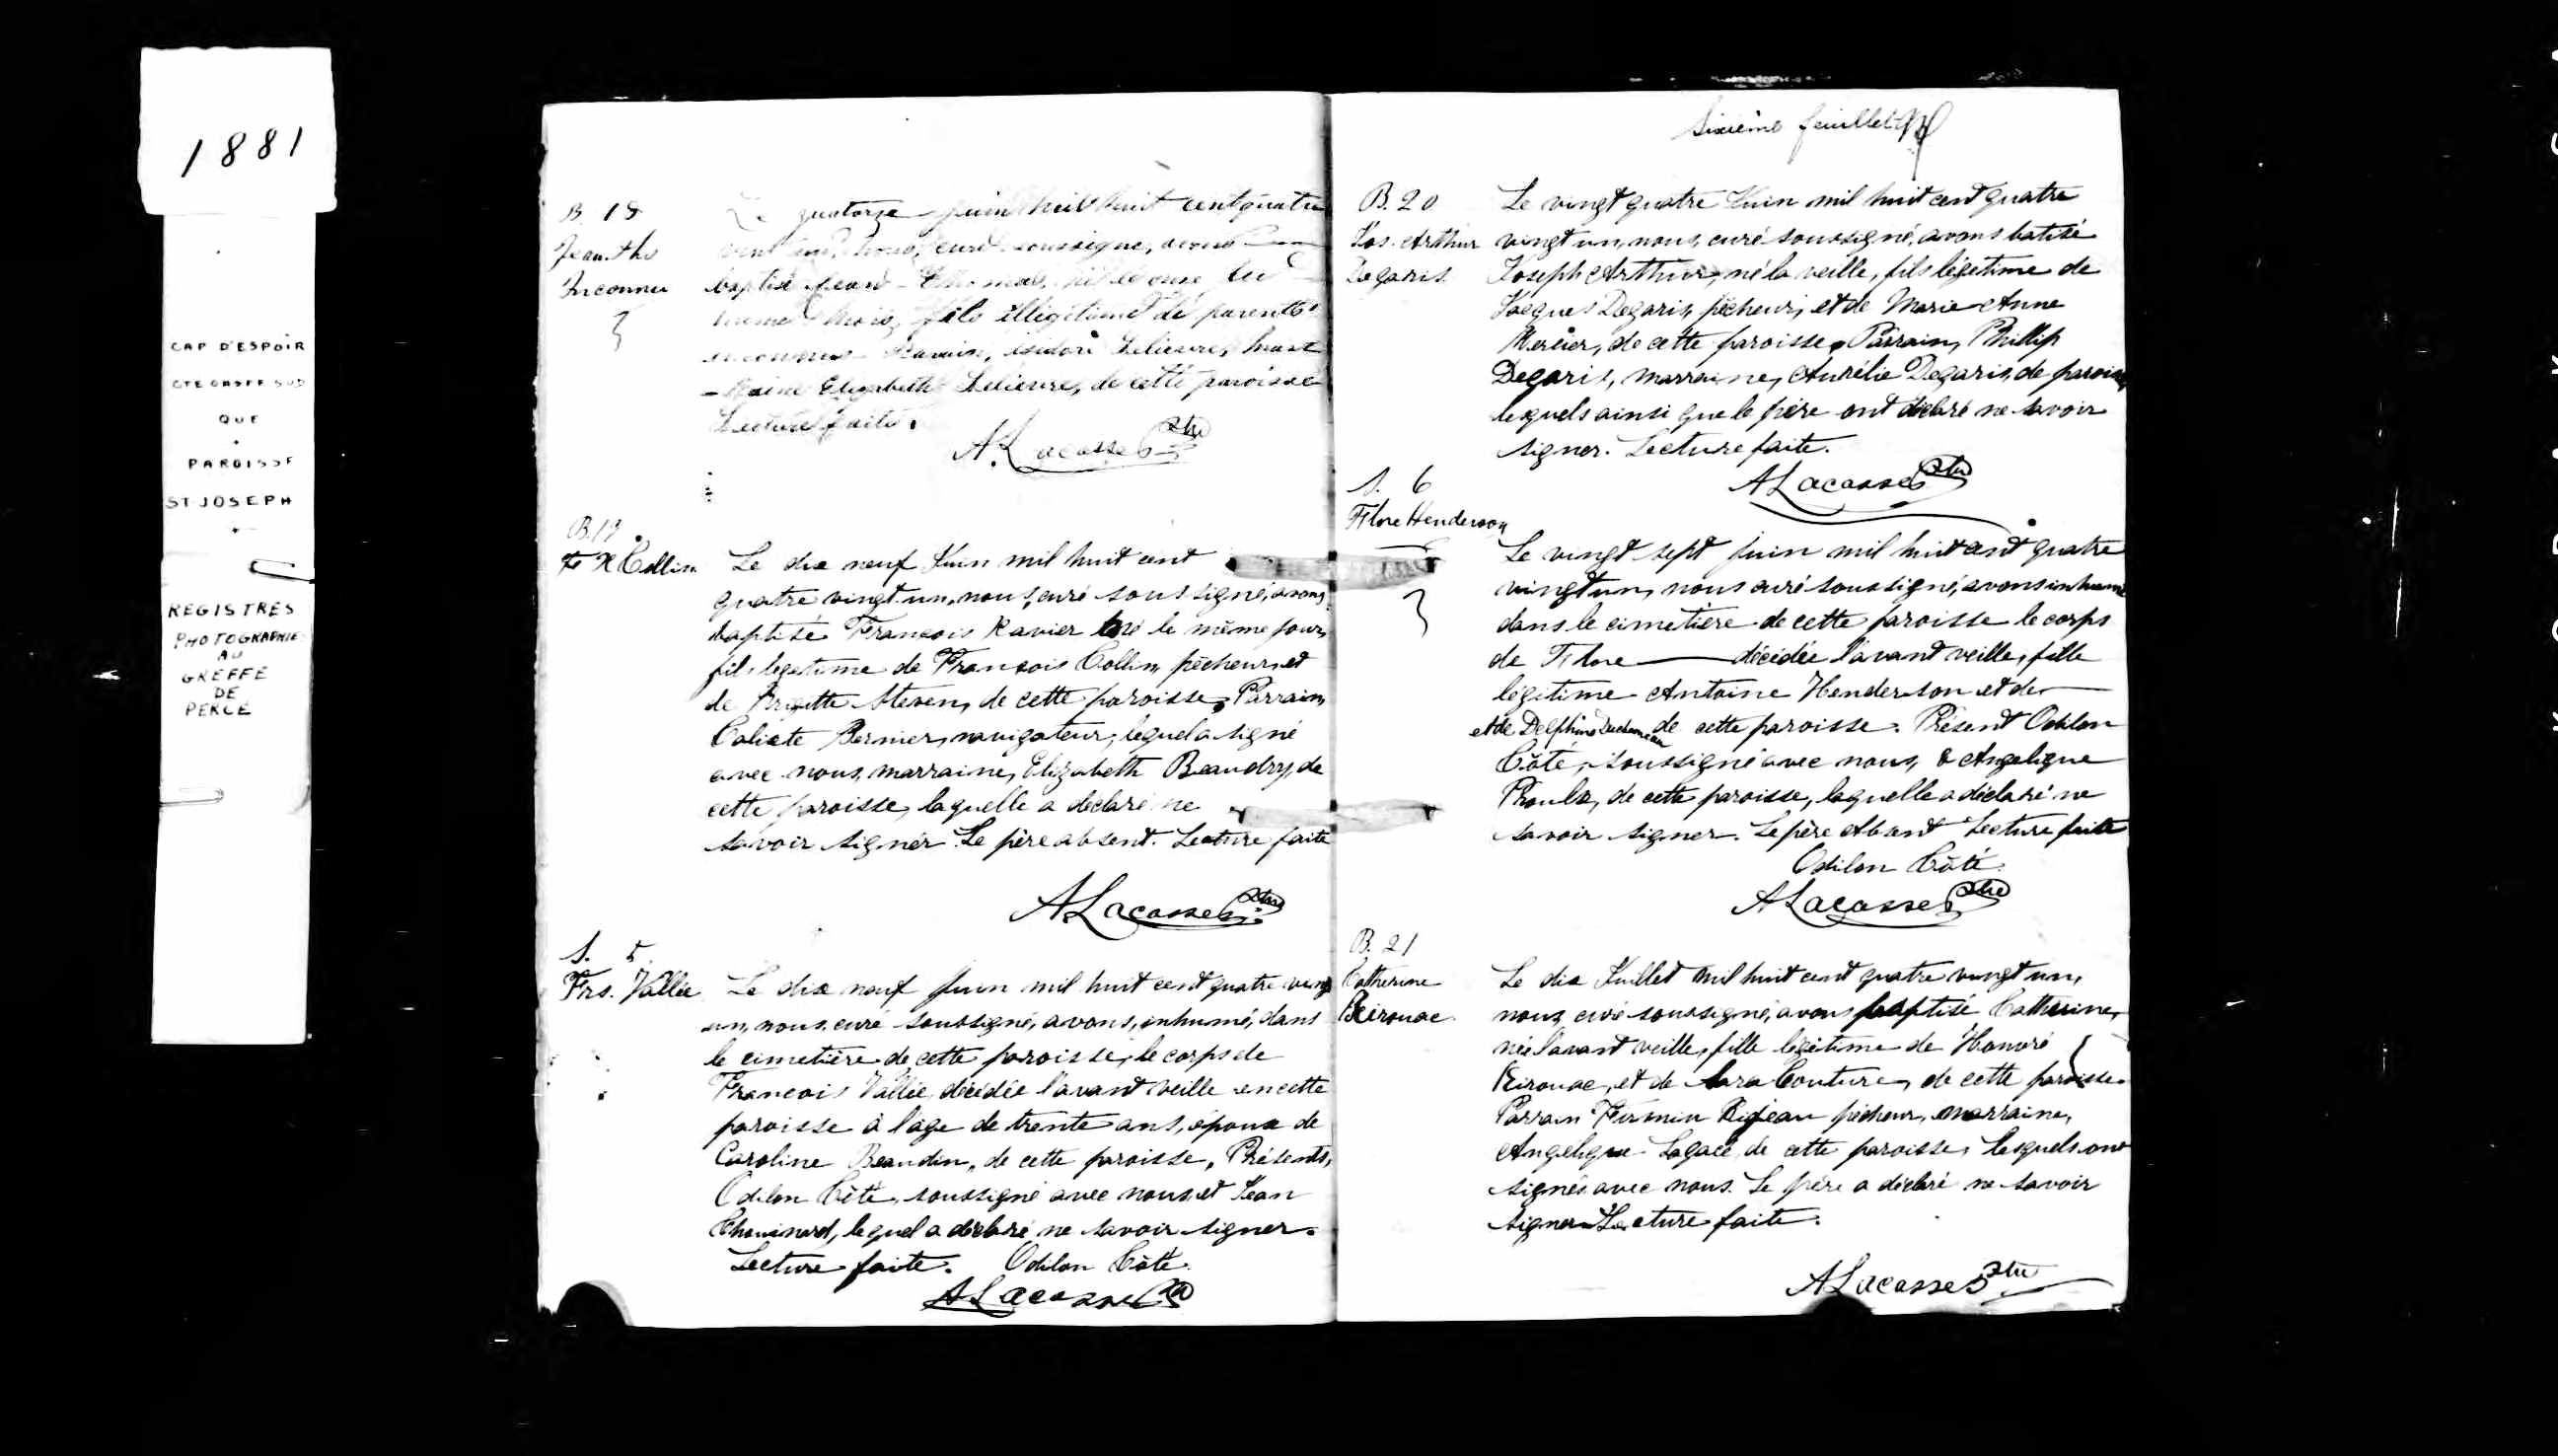 1881
CAP D'ESPOIR
CTE GASPE SUD
QUE
PAROISSE
ST JOSEPH
REGISTRES
PHOTOGRAPHIE
AU
GREFFE
DE
PERCE
B. 18
Jean. Ths
Inconnu
Le quatorze juin mil huit cent quatre
vingt un, nous, curé soussigné, avons
baptisé Jean Thomas, né le onze du
même mois, fils illégitime de parents
inconnus Parrain, isidore Lelievre, marr
-aine Elizabeth Lelievre, de cette paroisse
Lecture faite.
A. Lacasse Ptre
B. 19
F X Collin
Le dix neuf Juin mil huit cent
quatre vingt un, nous, curé soussigné, avons
baptisé Francois Xavier né le même jour,
fils legetime de Francois Collin, pêcheur, et
de Brigitte Steven, de cette paroisse, Parrain,
Calixte Bernier, navigateur, lequel a signé
avec nous, marraine, Elizabeth Beaudry, de
cette paroisse, laquelle a déclaré ne
savoir signer. Le père absent. Lecture faite
A Lacasse Ptre
S. 5.
Frs. Vallée
Le dix neuf Juin mil huit cent quatre vingt
un, nous, curé soussigné, avons, inhumé, dans
le cimetière de cette paroisse, le corps de
Francois Vallée, décédée l'avant veille en cette
paroisse à l'age de trente ans, époux de
Caroline Beaudin, de cette paroisse, Présents,
Odilon Côté, soussigné avec nous, et Jean
Chouinard, lequel a déclaré ne savoir signer.
Lecture faite. Odilon Côté.
A Lacasse Ptre
Sixième feuillet
B. 20
Jos. Arthur
Degaris
Le vingt quatre Juin mil huit cent quatre
vingt un, nous, curé soussigné, avons batisé
Joseph Arthur, né la veille, fils légetime de
Jacques Degaris, pêcheur, et de Marie Anne
Mercier, de cette paroisse, Parrain, Phillip
Degaris, marraine, Aurélie Degaris, de paroisse,
lesquels ainsi que le père ont déclaré ne savoir
signer. Lecture faite.
A Lacasse Ptre
S. 6
Flore Henderson
Le vingt sept juin mil huit cent quatre
vingt un, nous curé soussigné, avons inhumé
dans le cimetière de cette paroisse le corps
de Flore décédée l'avant veille, fille
légitime Antoine Henderson et de
et de Delphine de cette paroisse. Présent Odilon
Côté, soussigné avec nous, & Angelique
Proulx, de cette paroisse, laquelle a déclaré ne
savoir signer. Le père absent Lecture faite
Odilon Côté.
A Lacasse Ptre
B. 21
Catherine
Kirouac
Le dix Juillet mil huit cent quatre vingt un,
nous, curé soussigné, avons baptisé Catherine,
née l'avant veille, fille légitime de Honoré
Kirouac, et de Sara Couture, de cette paroisse.
Parrain Firmin pêcheur, marraine,
Angelique Lagacé, de cette paroisse, lesquels ont
signés avec nous. Le père a déclaré ne savoir
signer Lecture faite.
A Lacasse Ptre